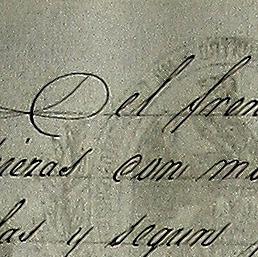 Del fren
ieras con m
las y segun